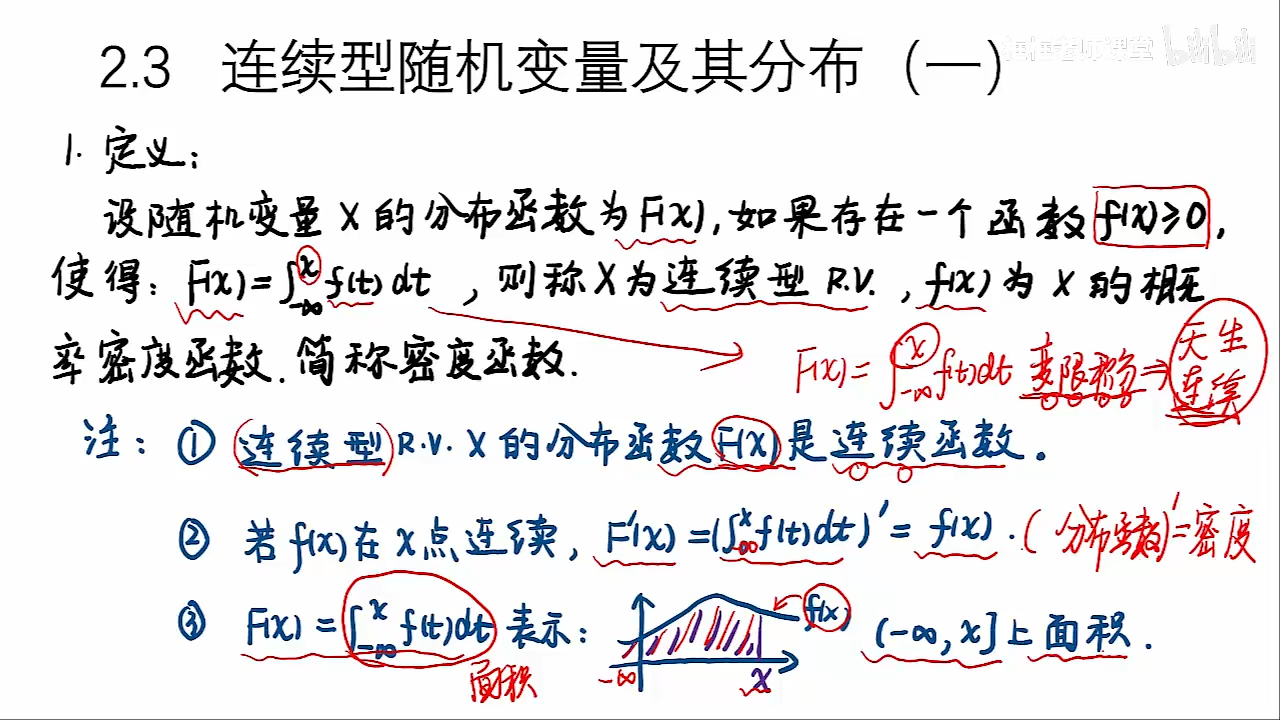 2.3 连续型随机变量及其分布（一）
bilibili
1. 定义:
设随机变量 X 的分布函数为 F(x), 如果存在一个函数 f(x)≥0,
使得: F(x)=∫_{-∞}^{x} f(t)dt, 则称 X 为连续型 R.V., f(x) 为 X 的概
率密度函数. 简称密度函数.
F(x)=∫_{-∞}^{x} f(t)dt 变限积分 ⇒ 天生
连续
注: ① 连续型 R.V. X 的分布函数 F(x) 是连续函数.
② 若 f(x) 在 x 点连续, F'(x)=(∫_{-∞}^{x} f(t)dt)'=f(x). (分布函数)'=密度
③ F(x)=∫_{-∞}^{x} f(t)dt 表示: f(x) (-∞,x] 上面积.
面积 -∞ x